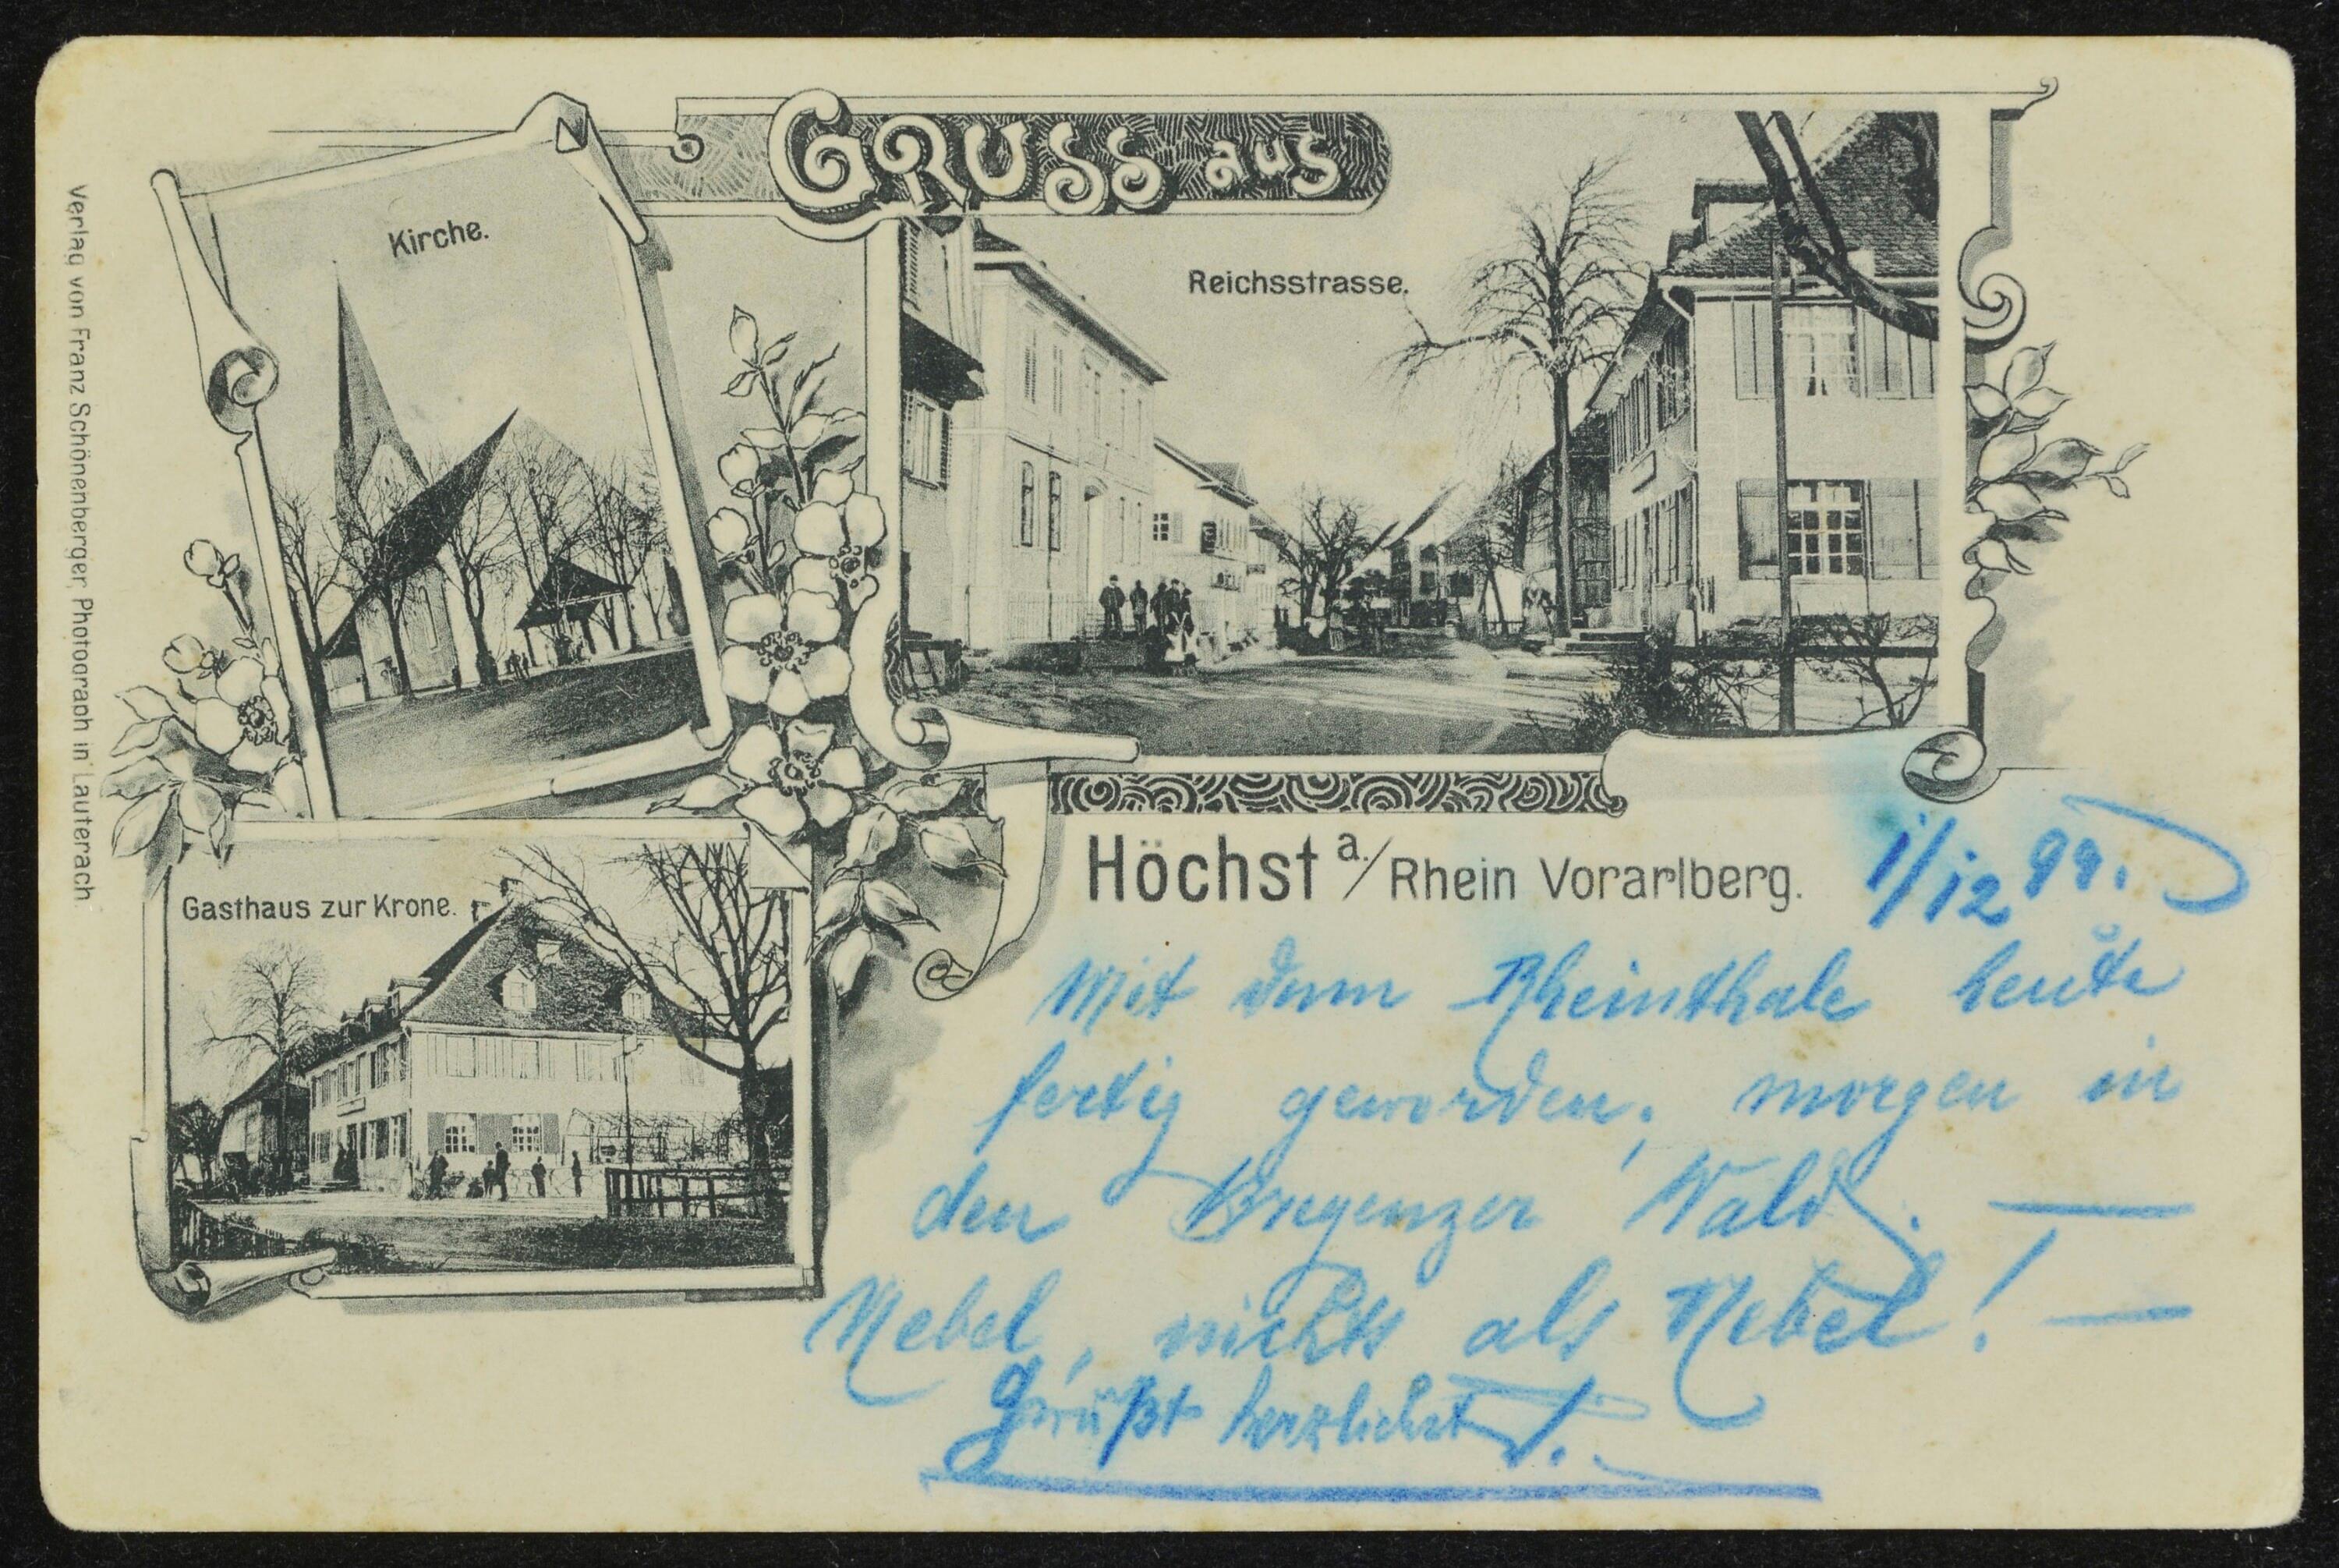 Gruss aus
Kirche.
Reichsstrasse.
Verlag von Franz Schöneberger, Photograph in Lauterach.
Gasthaus zur Krone.
Höchst a./Rhein Vorarlberg.
1/12 99.
Mit dem Rheinthale heute
fertig geworden; morgen in
den Bregenzer Wald. —
Nebel, nichts als Nebel! —
Grüßt herzlichst